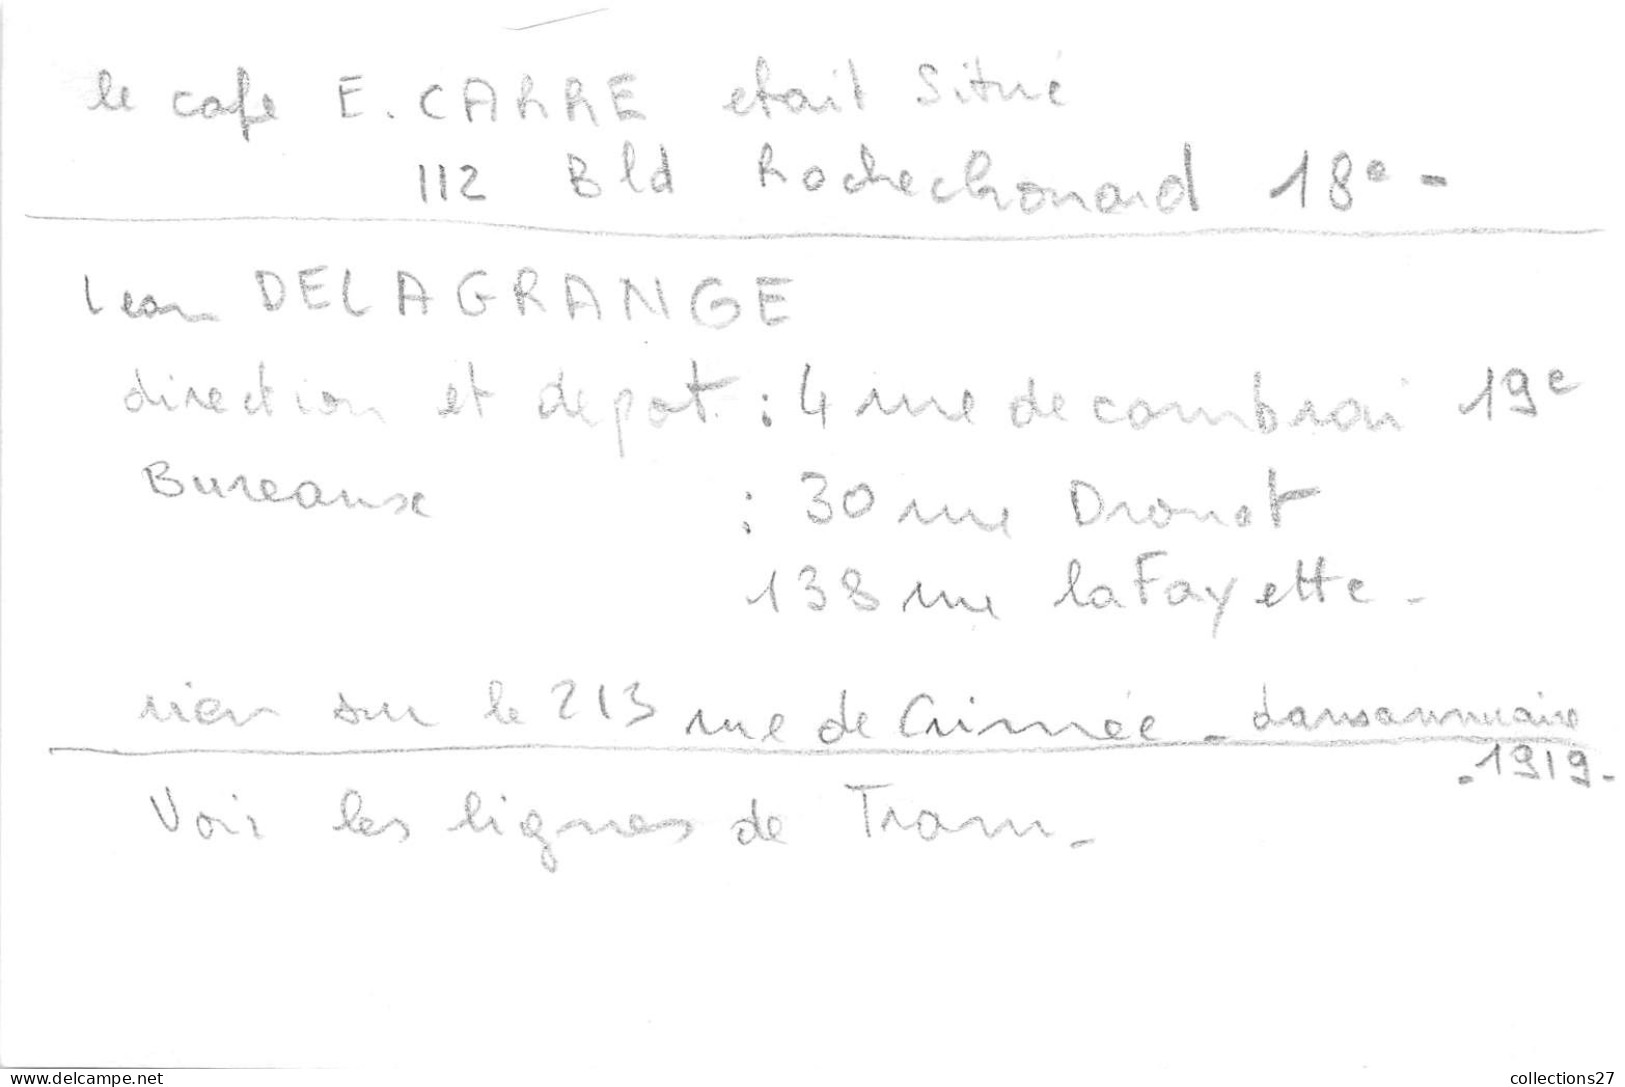 le cafe E. CARRE etait Situé
112 Bld Rochechouard 18e -
Leon DELAGRANGE
direction et depot : 4 rue de cambrai 19e
Bureaux : 30 rue Drouot
138 rue laFayette -
rien sur le 213 rue de Crimée - dans annuaire
- 1919 -
Voir les lignes de Tram -
www.delcampe.net
collections27